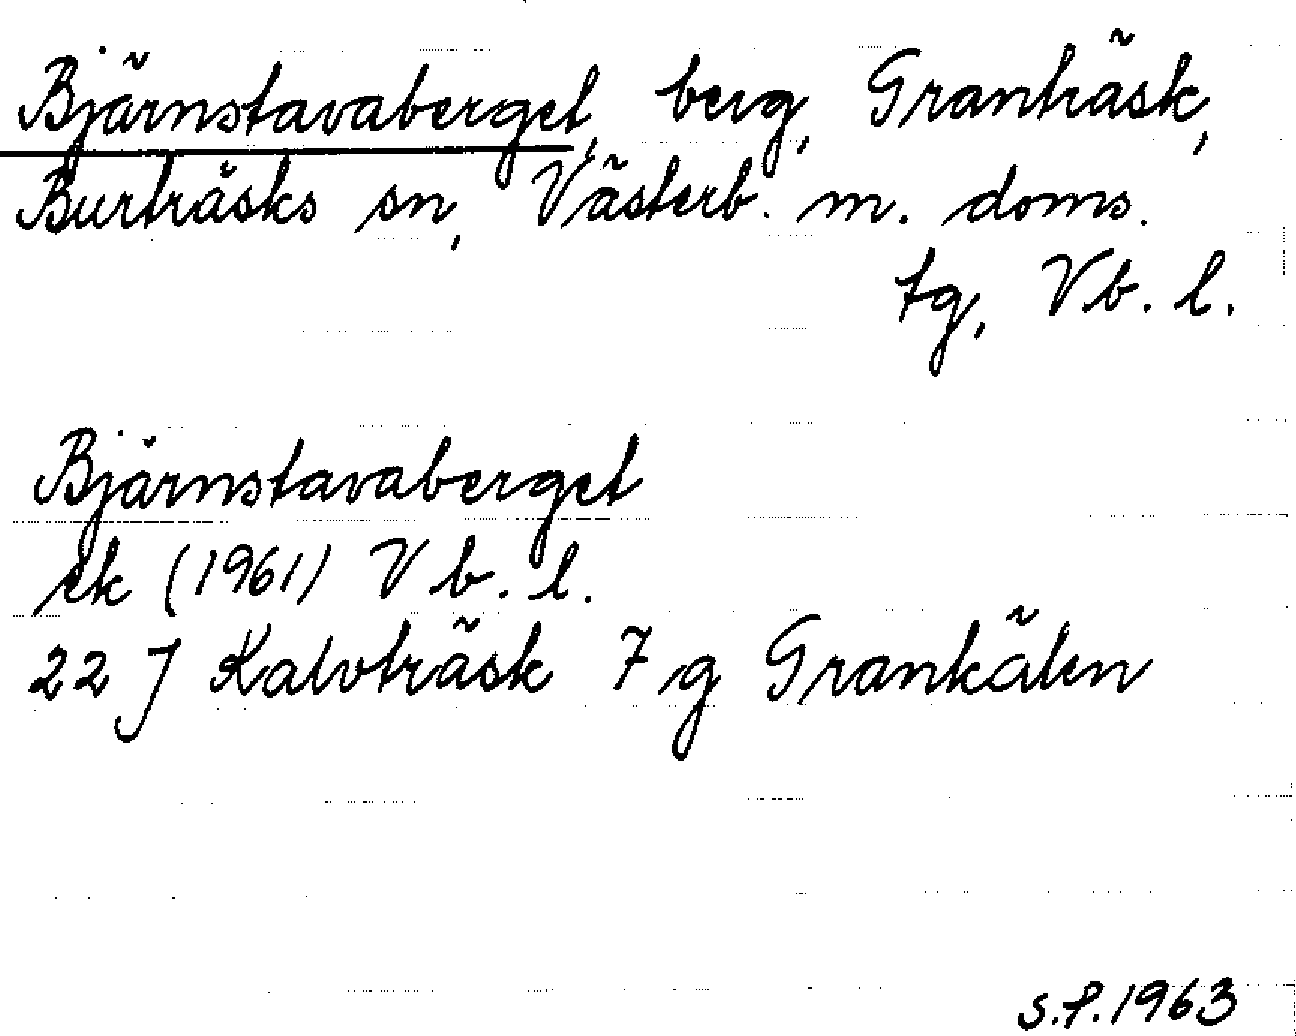 Bjärnstavaberget, berg, Granträsk,
Burträsks sn, Västerb. m. doms.
tg, Vb. l.
Bjärnstavaberget
ek (1961) Vb. l.
22 J Kalvträsk 7 g Grankålen
S.P. 1963